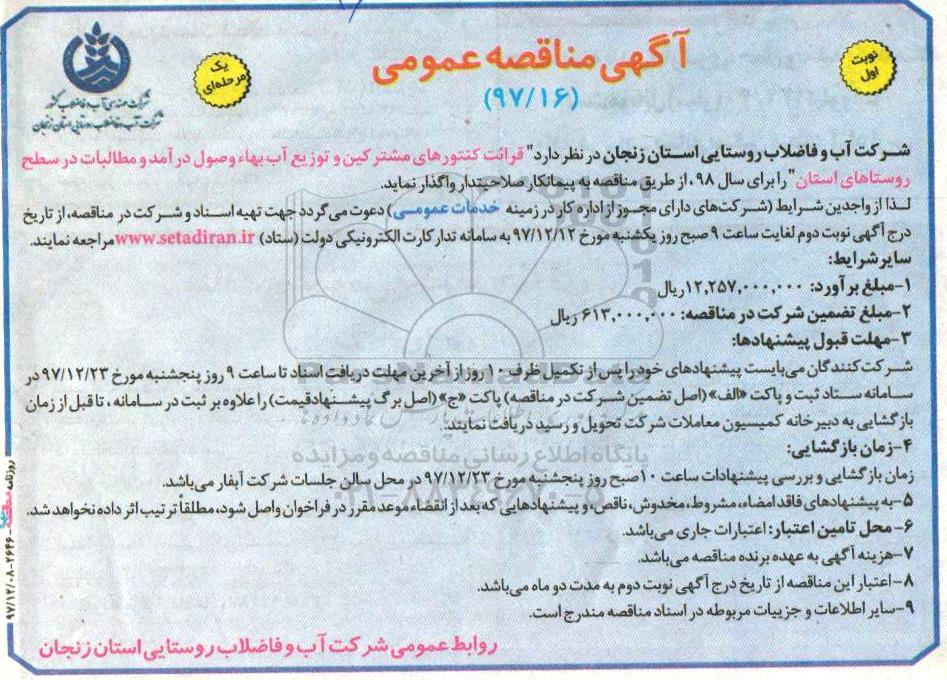 آگهی مناقصه عمومی
(۹۷/۱۶)
نوبت
اول
یک
مرحله‌ای
شرکت مهندسی آب و فاضلاب کشور
شرکت آب و فاضلاب روستایی استان زنجان
شرکت آب و فاضلاب روستایی استان زنجان در نظر دارد" قرائت کنتورهای مشترکین و توزیع آب بهاء وصول درآمد و مطالبات در سطح
روستاهای استان" را برای سال ۹۸، از طریق مناقصه به پیمانکار صلاحیتدار واگذار نماید.
لذا از واجدین شرایط (شرکت‌های دارای مجوز از اداره کار در زمینه خدمات عمومی) دعوت می‌گردد جهت تهیه اسناد و شرکت در مناقصه، از تاریخ
درج آگهی نوبت دوم لغایت ساعت ۹ صبح روز یکشنبه مورخ ۹۷/۱۲/۱۲ به سامانه تدارکارت الکترونیکی دولت (ستاد) www.setadiran.ir مراجعه نمایند.
سایر شرایط:
۱-مبلغ برآورد: ۱۲,۲۵۷,۰۰۰,۰۰۰ریال
۲-مبلغ تضمین شرکت در مناقصه: ۶۱۳,۰۰۰,۰۰۰ ریال
۳-مهلت قبول پیشنهادها:
شرکت کنندگان می‌بایست پیشنهادهای خود را پس از تکمیل ظرف ۱۰ روز از آخرین مهلت دریافت اسناد تا ساعت ۹ روز پنجشنبه مورخ ۹۷/۱۲/۲۳ در
سامانه ستاد ثبت و پاکت «الف» (اصل تضمین شرکت در مناقصه) پاکت «ج» (اصل برگ پیشنهاد قیمت) را علاوه بر ثبت در سامانه، تا قبل از زمان
بازگشایی به دبیرخانه کمیسیون معاملات شرکت تحویل و رسید دریافت نمایند.
۴-زمان بازگشایی:
زمان بازگشایی و بررسی پیشنهادات ساعت ۱۰صبح روز پنجشنبه مورخ ۹۷/۱۲/۲۳ در محل سالن جلسات شرکت آبفار می‌باشد.
۵-به پیشنهادهای فاقد امضاء، مشروط، مخدوش، ناقص، و پیشنهادهایی که بعد از انقضاء موعد مقرر در فراخوان واصل شود، مطلقاً ترتیب اثر داده نخواهد شد.
۶- محل تامین اعتبار: اعتبارات جاری می‌باشد.
۷-هزینه آگهی به عهده برنده مناقصه می‌باشد.
۸-اعتبار این مناقصه از تاریخ درج آگهی نوبت دوم به مدت دو ماه می‌باشد.
۹-سایر اطلاعات و جزییات مربوطه در اسناد مناقصه مندرج است.
روابط عمومی شرکت آب و فاضلاب روستایی استان زنجان
روزنامه مناقصه -۲۶۴۶-۹۷/۱۲/۰۸
ParsNamadData
پایگاه اطلاع رسانی مناقصه و مزایده
۰۲۱-۸۸۳۴۹۶۷۰-۵